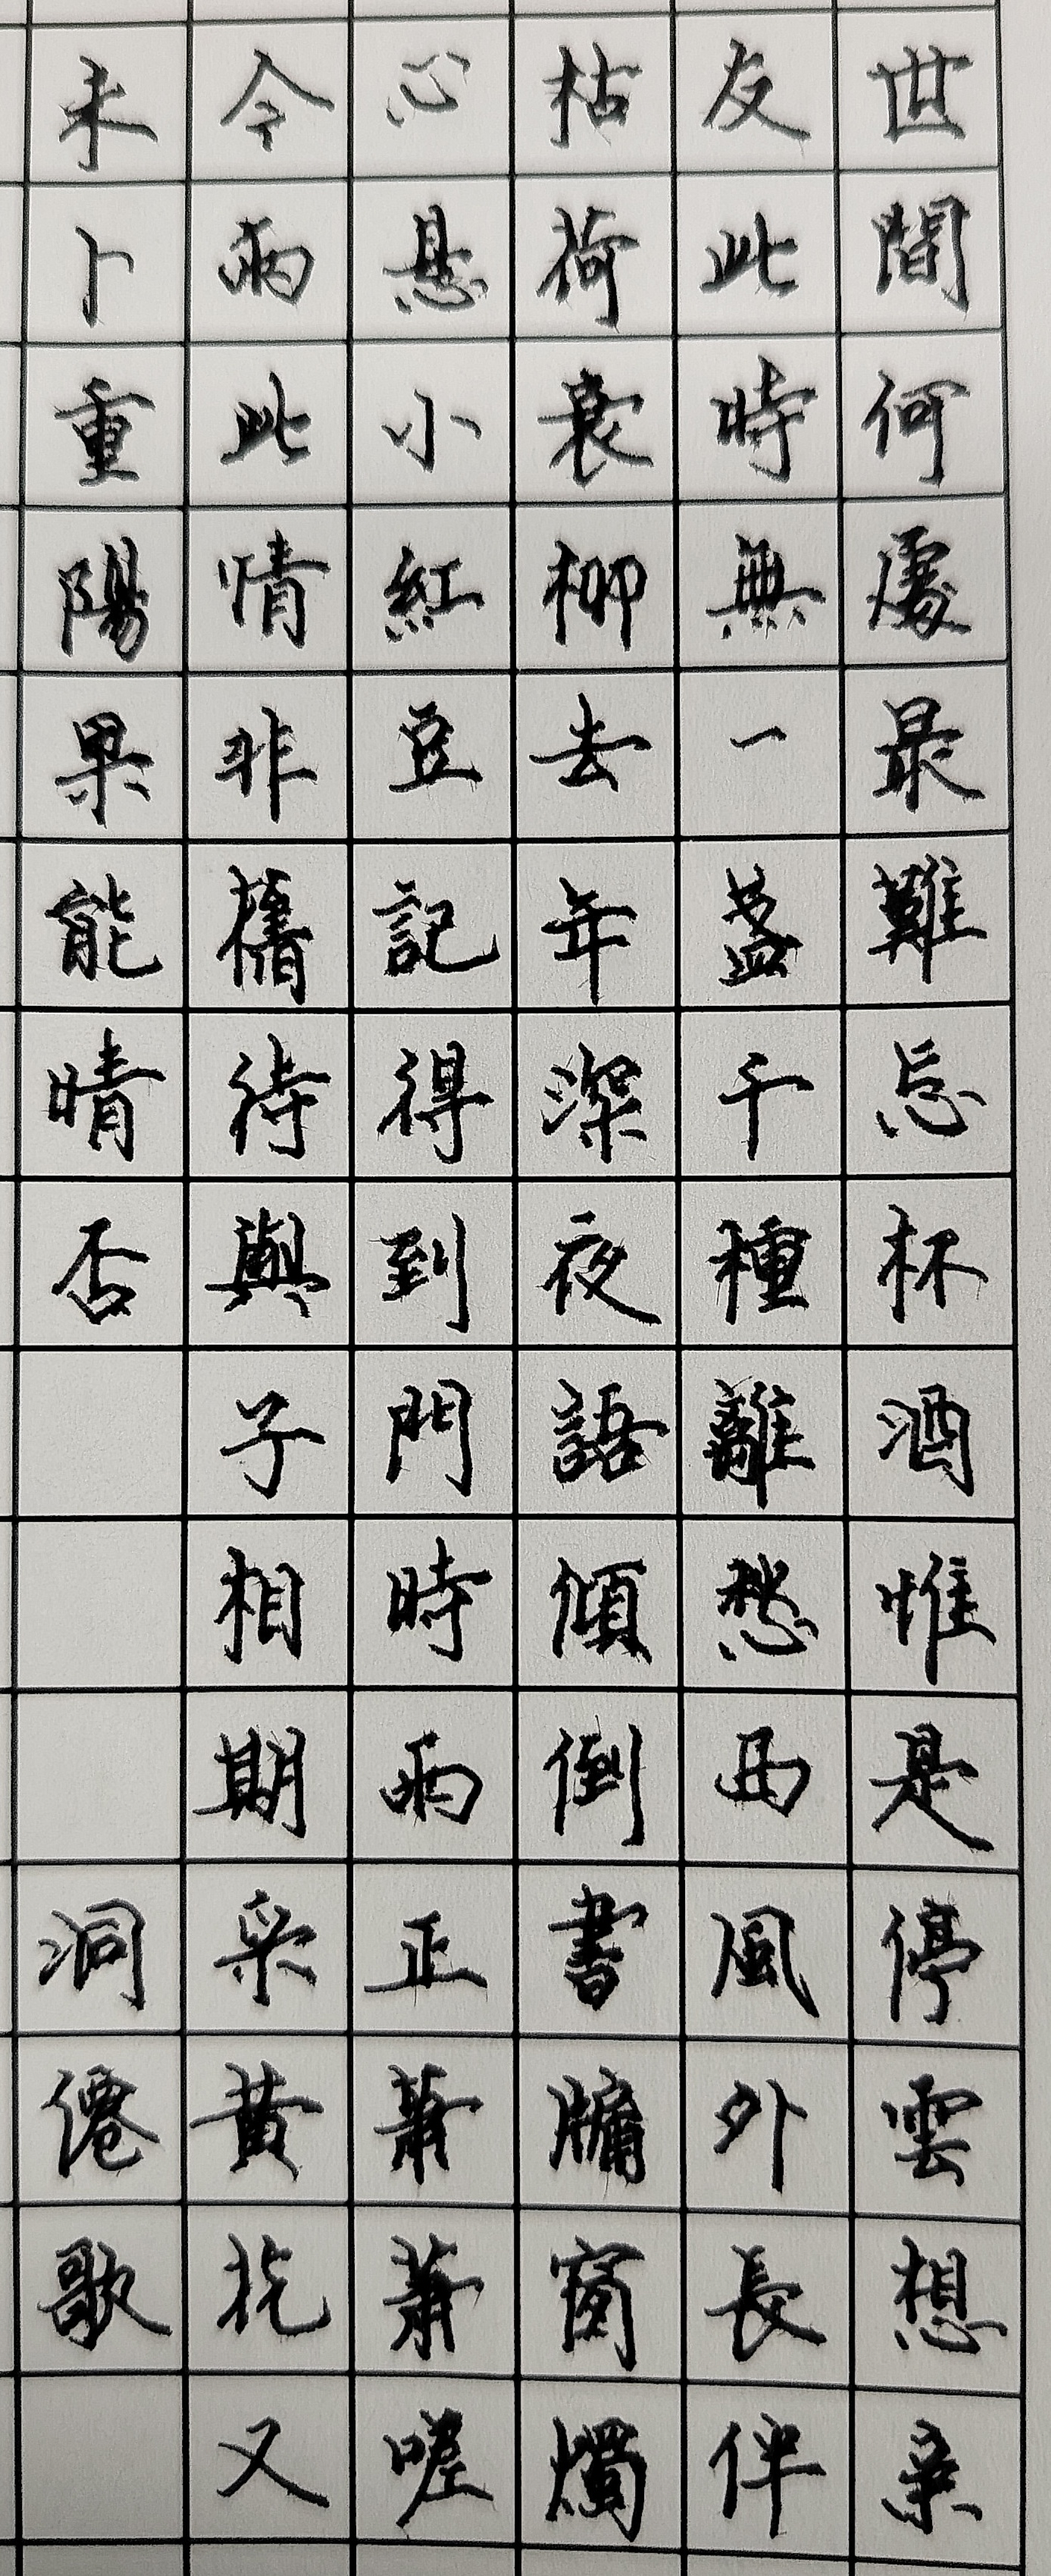 世間何處最難忘杯酒惟是停雲想亲
友此時無一盞千種離愁西風外長伴
枯荷衰柳去年深夜語傾倒書牖窗燭
心悬小紅豆記得到門時雨正蕭蕭嗟
今雨此情非舊待與子相期采黃花又
未卜重陽果能晴否 洞僊歌